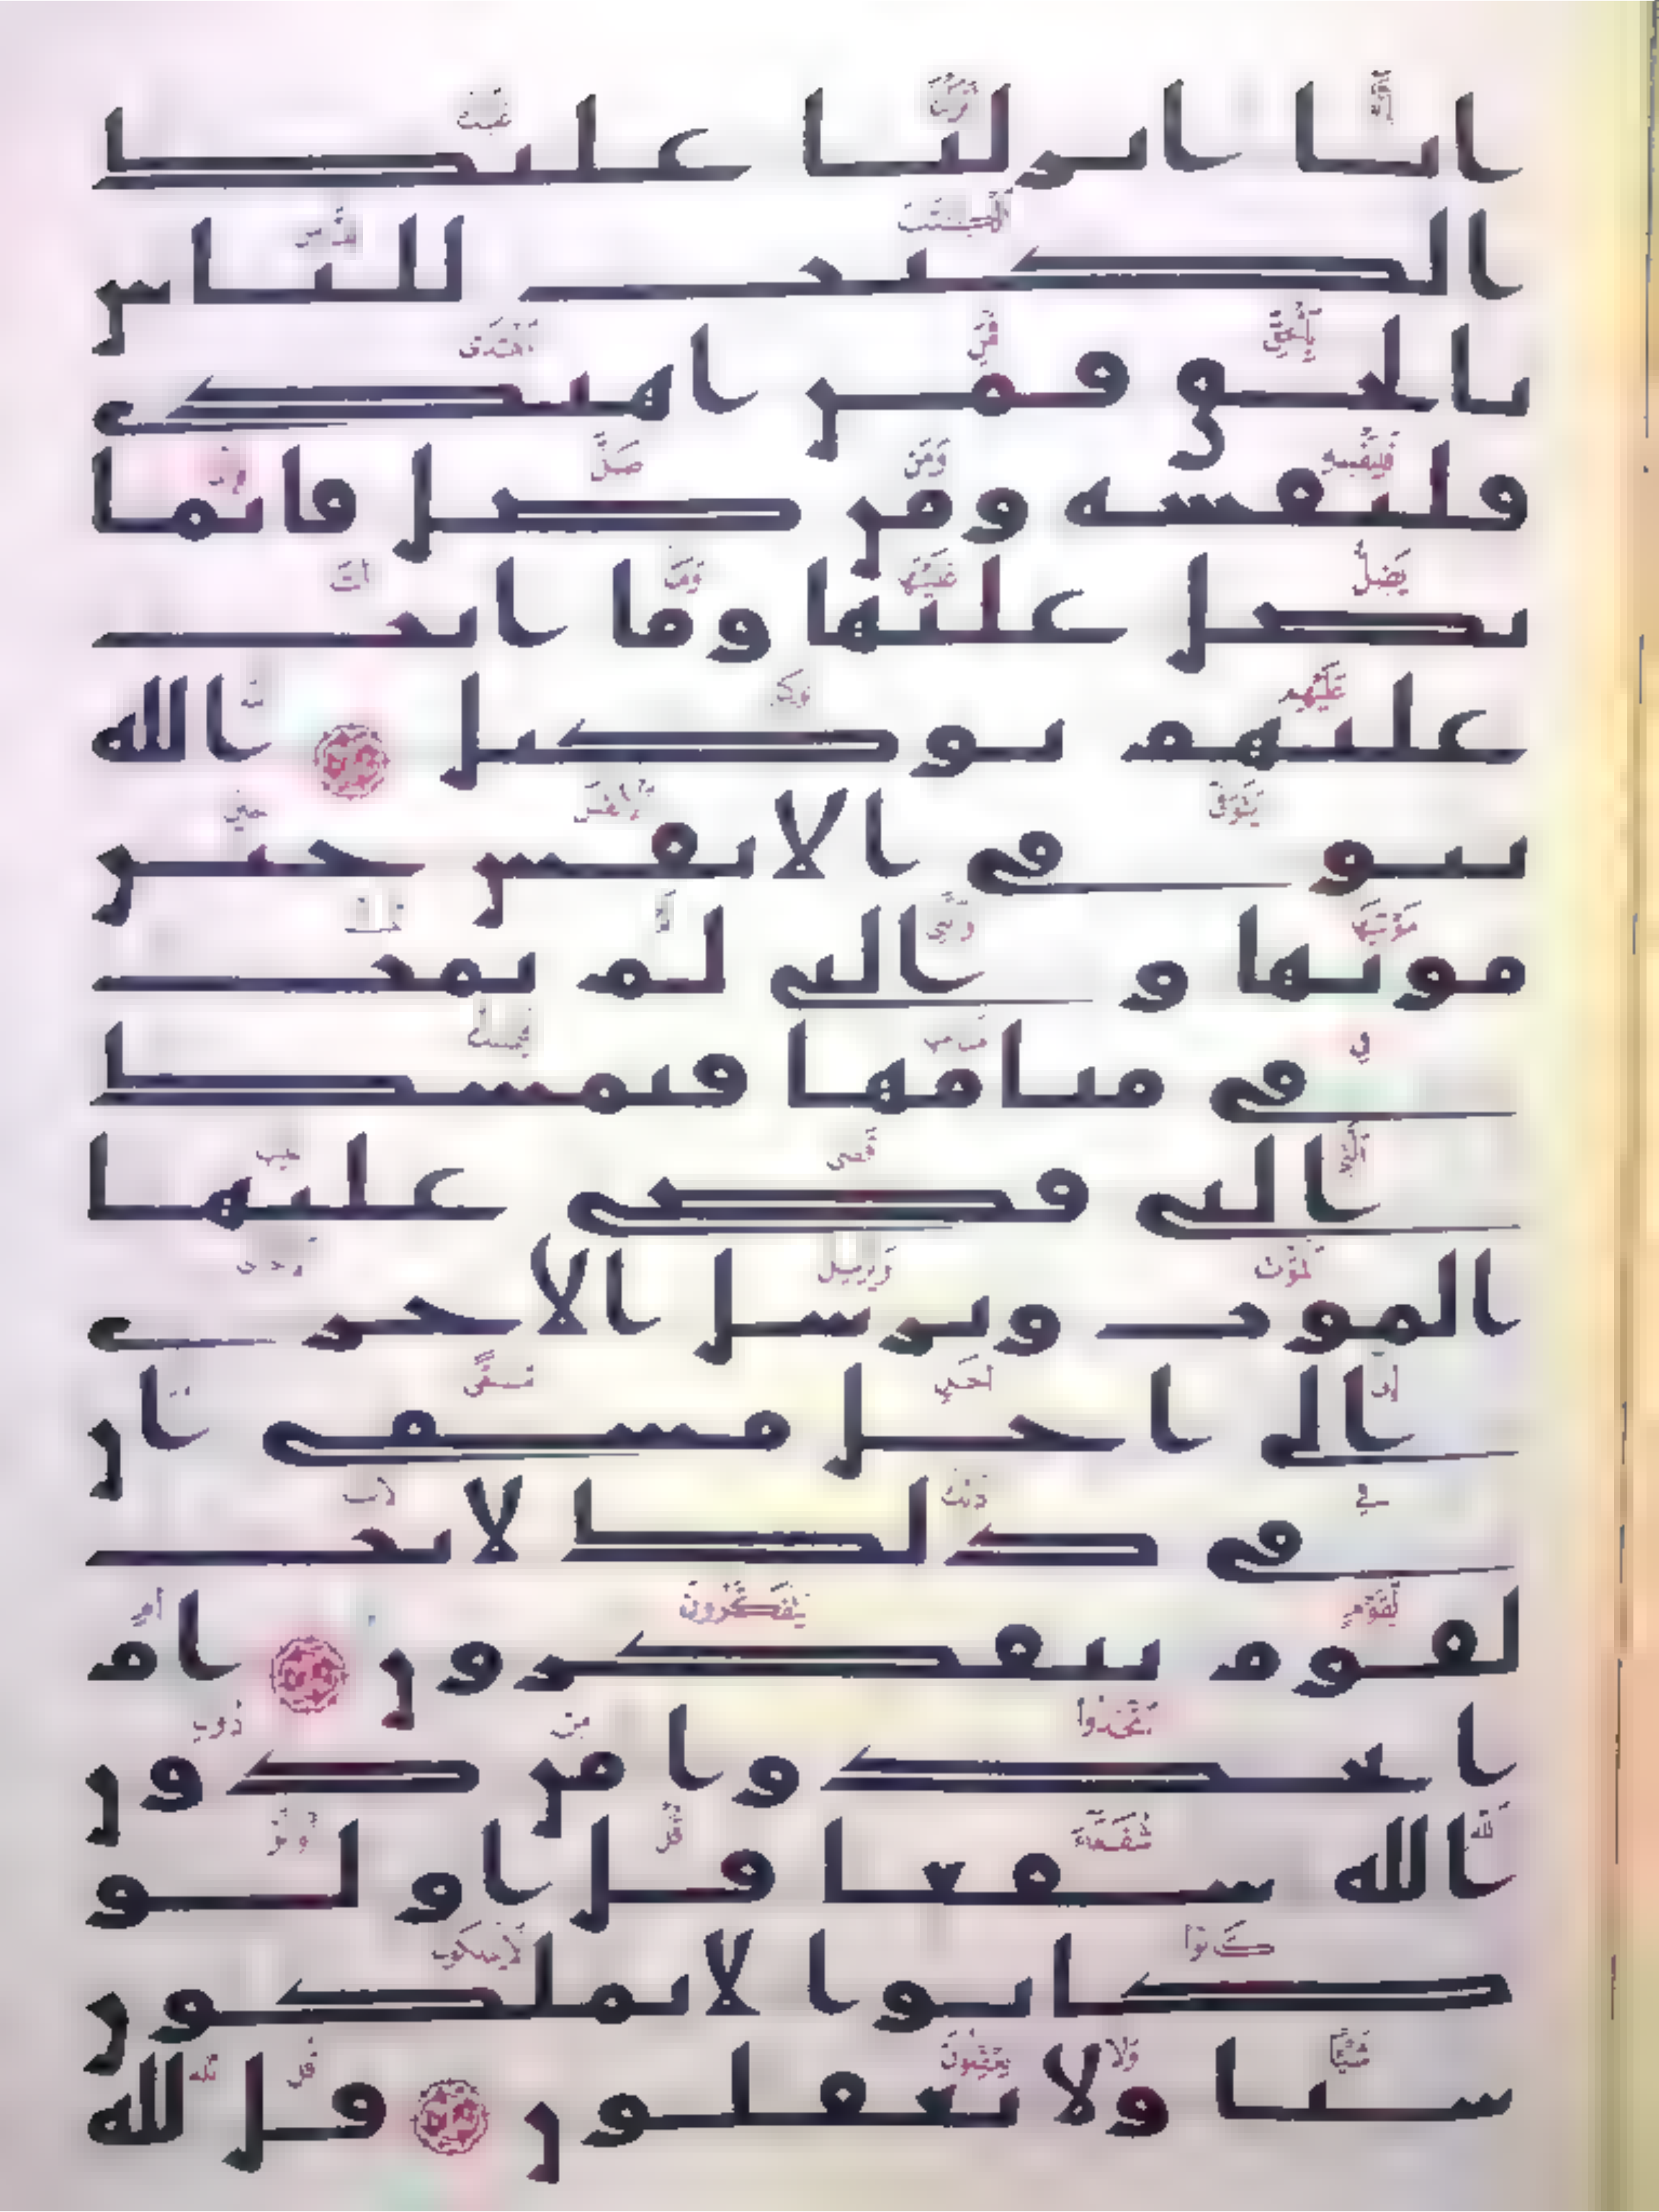 انا انزلنا عليك
الكتب للناس
بالحق فمن اهتدى
فلنفسه ومن ضل فانما
يضل عليها وما انت
عليهم بوكيل الله
يتوفى الانفس حين
موتها والتى لم تمت
فى منامها فيمسك
التى قضى عليها
الموت ويرسل الاخرى
الى اجل مسمى ان
فى ذلك لايت
لقوم يتفكرون ام
اتخذوا من دون
الله شفعا قل اولو
كانوا لا يملكون
شيا ولا يعقلون قل لله